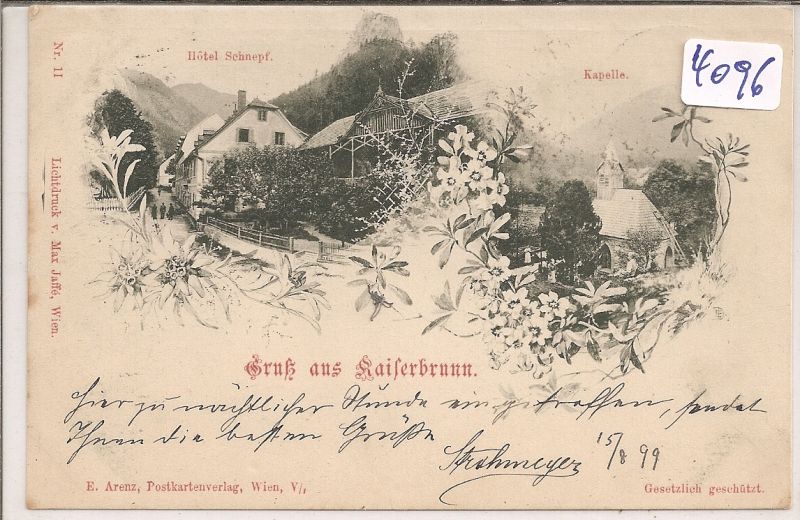 Hôtel Schnepf.
Kapelle.
4096
Nr. 11
Lichtdruck v. Max Jaffé, Wien.
Gruß aus Kaiserbrunn.
Hier zu nächtlicher Stunde eingetroffen, sendet
Ihnen die besten Grüße
Strohmeyer 15/8 99
E. Arenz, Postkartenverlag, Wien, V/1
Gesetzlich geschützt.